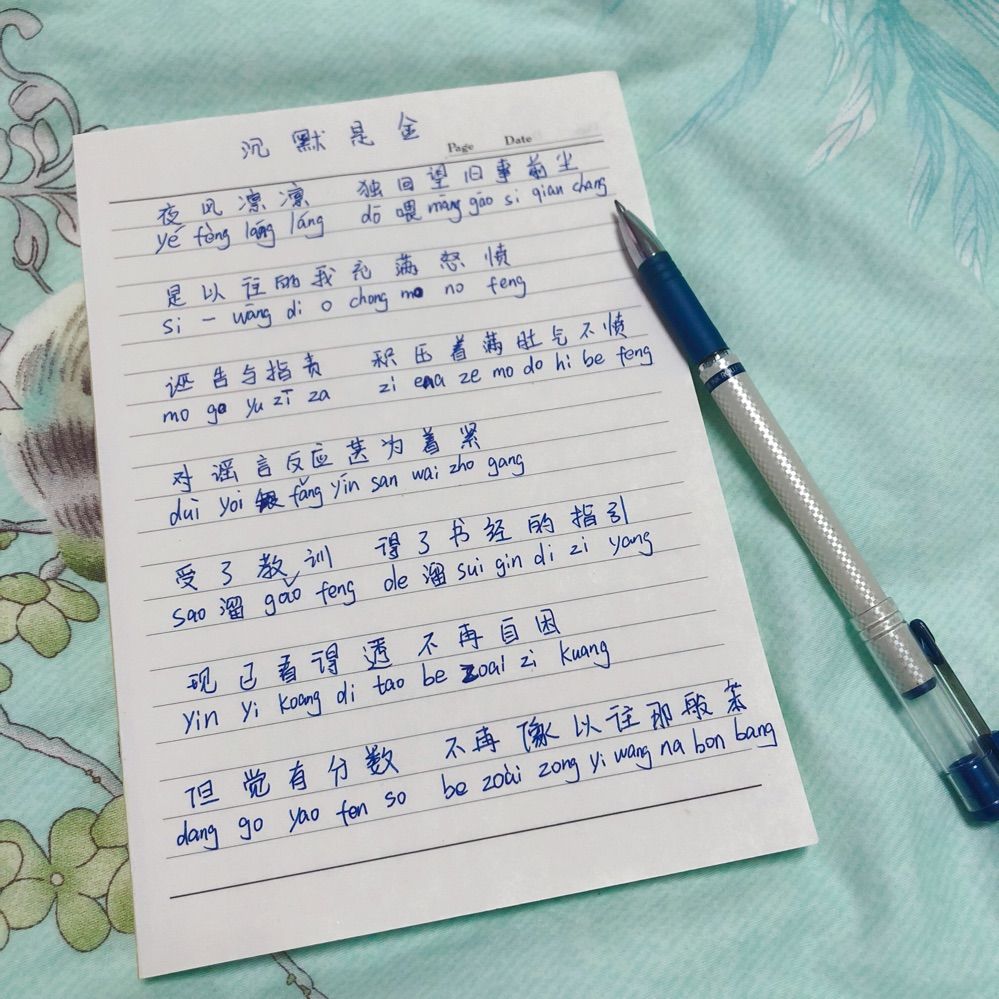 沉默是金
Page Date
夜风凛凛 独回望旧事前尘
yé fèng láng láng dō 喂 màng gāo si qian chang
是以往的我充满怒愤
si 一 wāng di o chong mo no feng
诬告与指责 积压着满肚气不愤
mo go yu zī za zi ena ze mo do hi be feng
对谣言反应甚为着紧
duì yoi fǎng yīn san wai zho gang
受了教训 得了书经的指引
sao 溜 gǎo feng de 溜 sui gin di zi yang
现已看得透不再自困
yin yi koang di tao be zoai zi kuang
但觉有分数 不再像以往那般笨
dang go yao fen so be zoài zong yi wang na bon bang